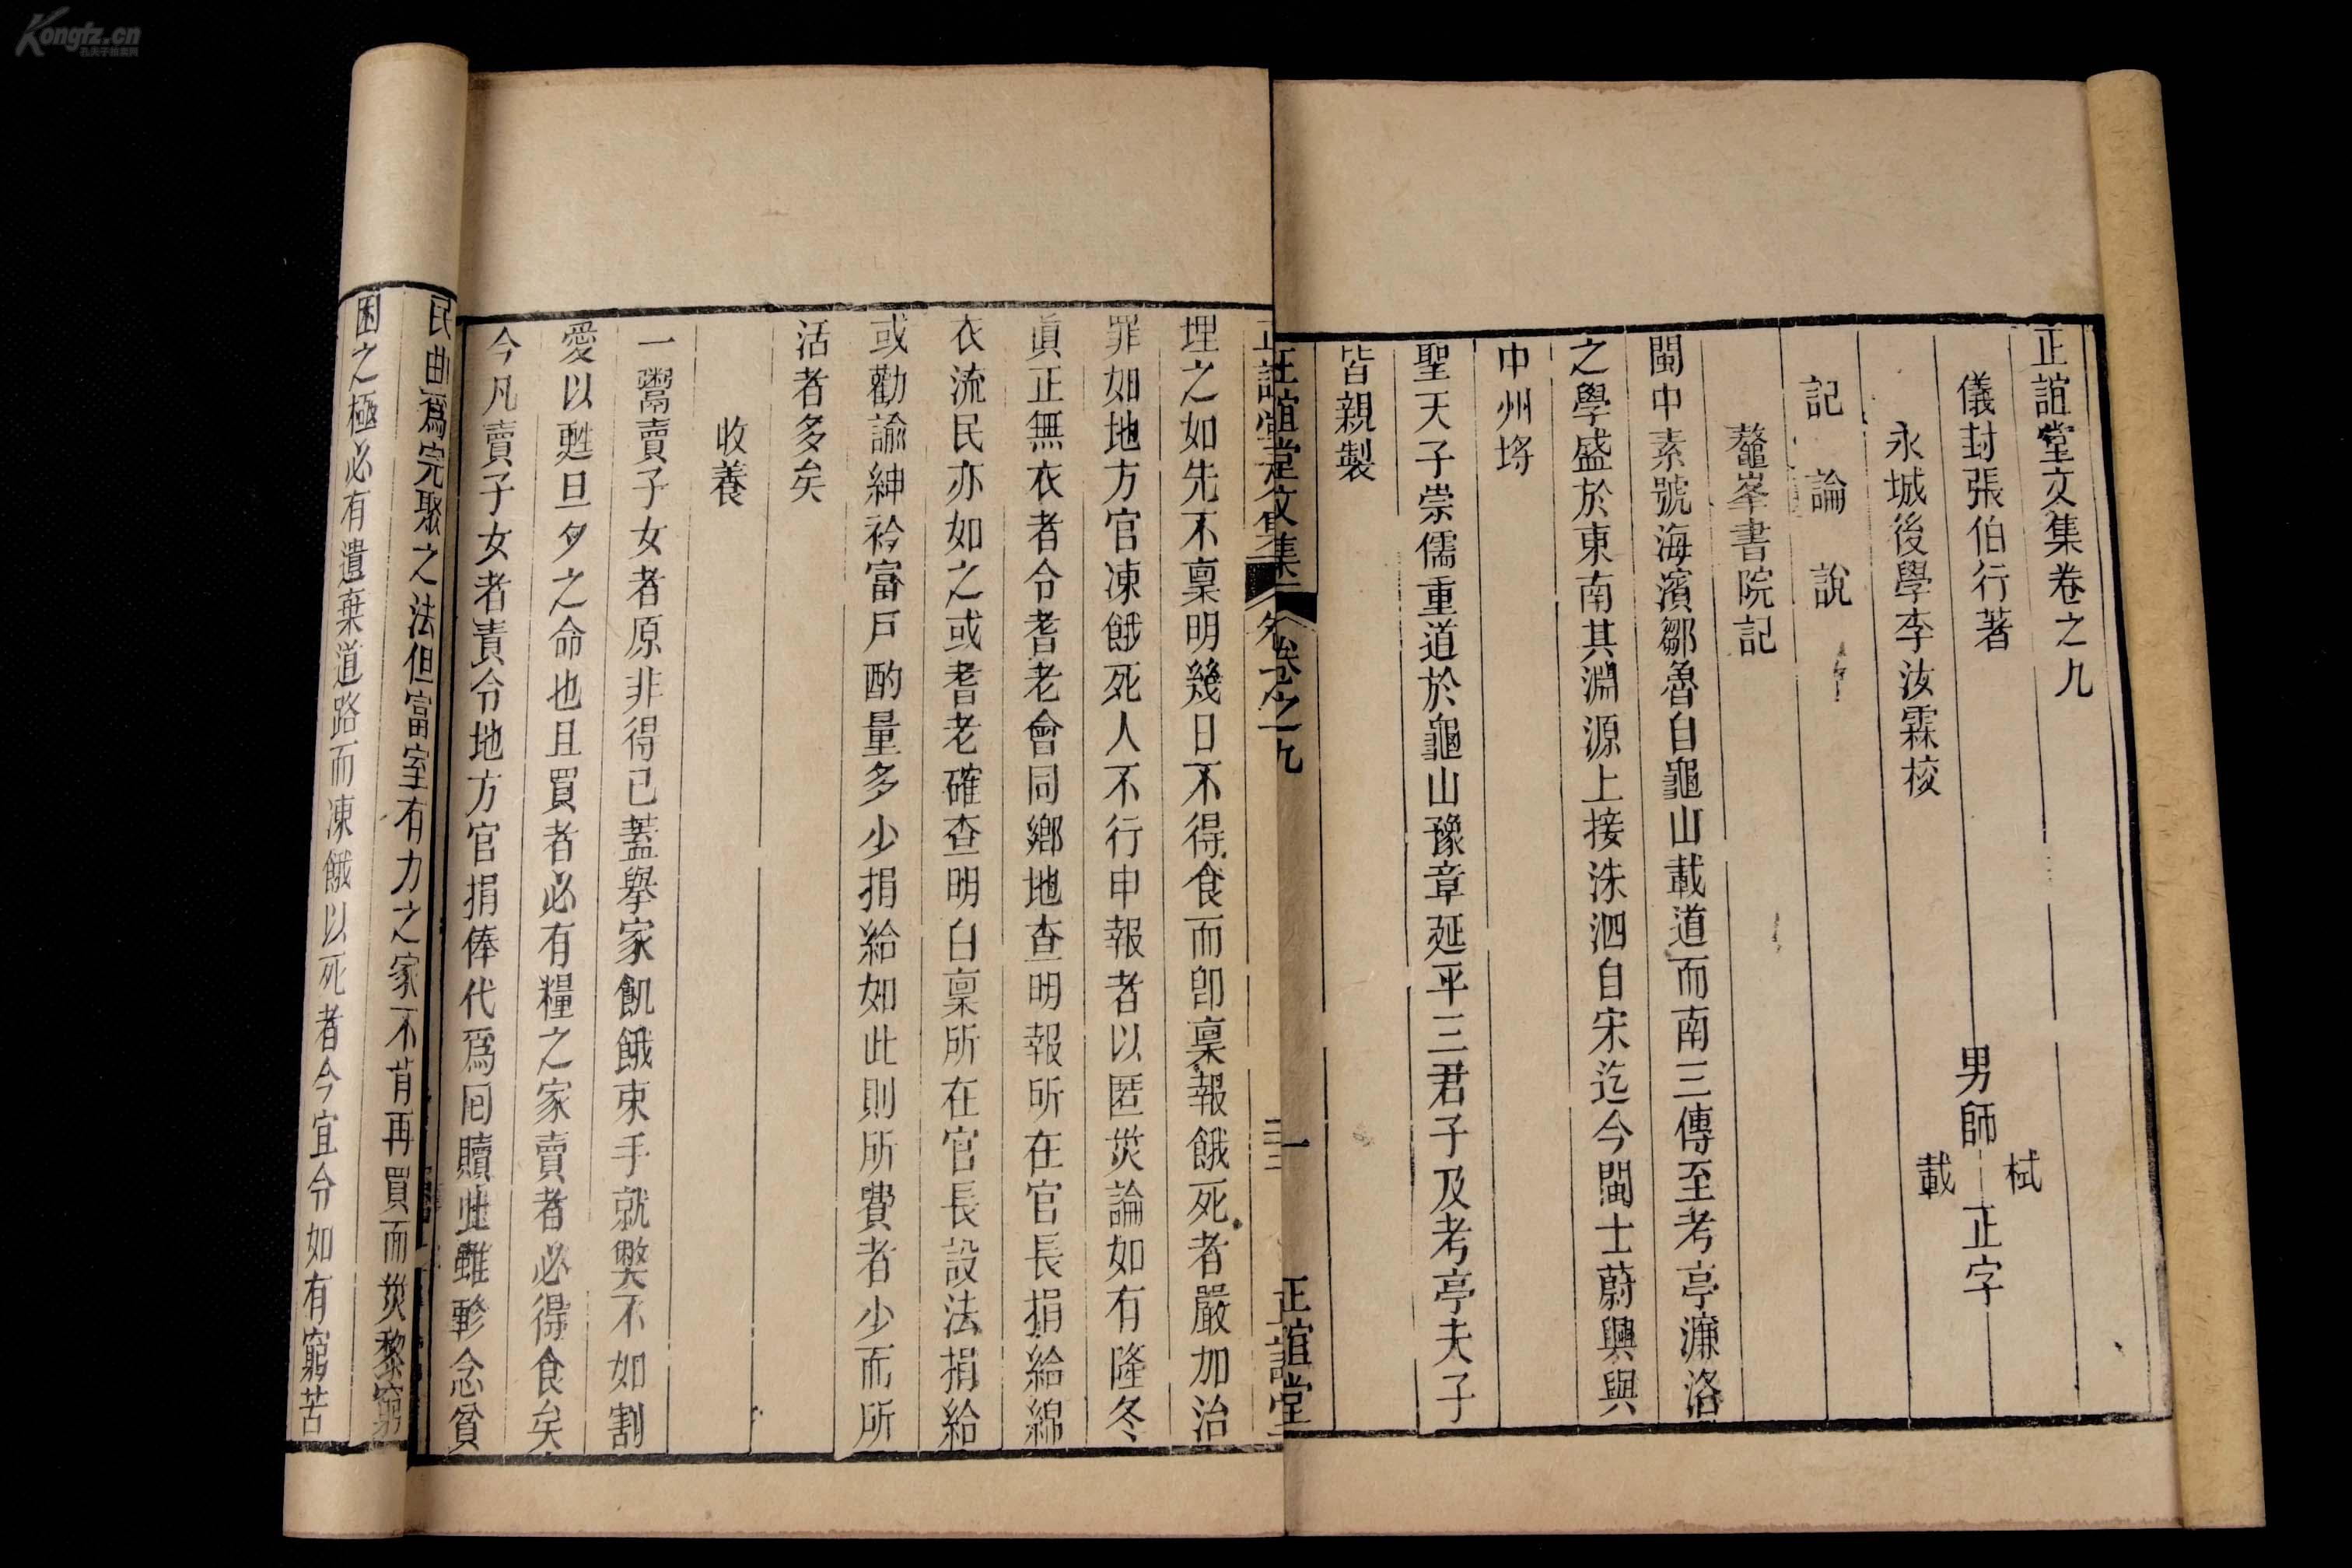 正誼堂文集卷之九
儀封張伯行著
男師栻載正字
永城後學李汝霖校
記論說
鼇峯書院記
閩中素號海濱鄒魯自龜山載道而南三傳至考亭濂洛
之學盛於東南其淵源上接洙泗自宋迄今閩士蔚興與
中州埒
聖天子崇儒重道於龜山豫章延平三君子及考亭夫子
皆親製
正誼堂文集
卷之九
一
正誼堂
埋之如先不稟明幾日不得食而卽稟報餓死者嚴加治
罪如地方官凍餓死人不行申報者以匿災論如有隆冬
眞正無衣者令耆老會同鄉地查明報所在官長捐給綿
衣流民亦如之或耆老確查明白稟所在官長設法捐給
或勸諭紳衿富戶酌量多少捐給如此則所費者少而所
活者多矣
收養
一鬻賣子女者原非得已蓋舉家飢餓束手就斃不如割
愛以甦旦夕之命也且買者必有糧之家賣者必得食矣
今凡賣子女者責令地方官捐俸代爲囘贖此雖軫念貧
民曲爲完聚之法但富室有力之家不肯再買而災黎窮
困之極必有遺棄道路而凍餓以死者今宜令如有窮苦
Kongfz.cn
孔夫子拍卖网